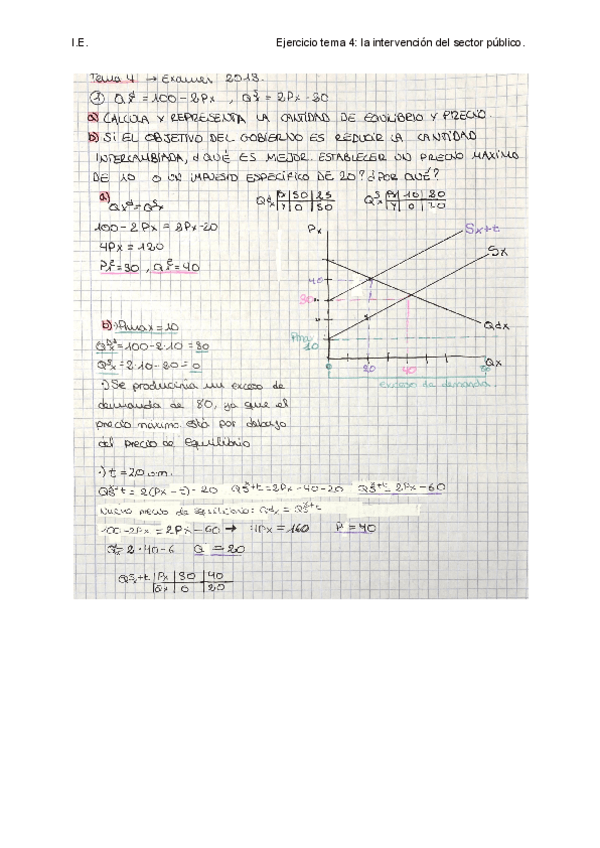 I.E. Ejercicio tema 4: la intervención del sector público.
Tema 4 → Examen 2013.
① Qxd = 100 - 2Px , Qxs = 2Px - 20
a) CALCULA Y REPRESENTA LA CANTIDAD DE EQUILIBRIO Y PRECIO.
b) SI EL OBJETIVO DEL GOBIERNO ES REDUCIR LA CANTIDAD
INTERCAMBIADA, ¿QUÉ ES MEJOR ESTABLECER UN PRECIO MÁXIMO
DE 10 O UN IMPUESTO ESPECÍFICO DE 20? ¿POR QUÉ?
a) Qxd = Qxs
100 - 2Px = 2Px - 20
4Px = 120
PxE = 30 , QxE = 40
Px
Sx+t
Sx
40
30
Pmax
10
Qdx
Qx
0 20 40 80
exceso de demanda.
b) ·) Pmax = 10
Qxd = 100 - 2·10 = 80
Qxs = 2·10 - 20 = 0
·) Se produciría un exceso de
demanda de 80, ya que el
precio máximo está por debajo
del precio de equilibrio
·) t = 20 u.m.
- 20 = 2Px - 40 - 20 = 2Px - 60
Nuevo precio de equilibrio: Qdx =
100 - 2Px = 2Px - 60 → 4Px = 160 P = 40
Q = 20
Qxs+t Px | 30 | 40
Qx | 0 | 20